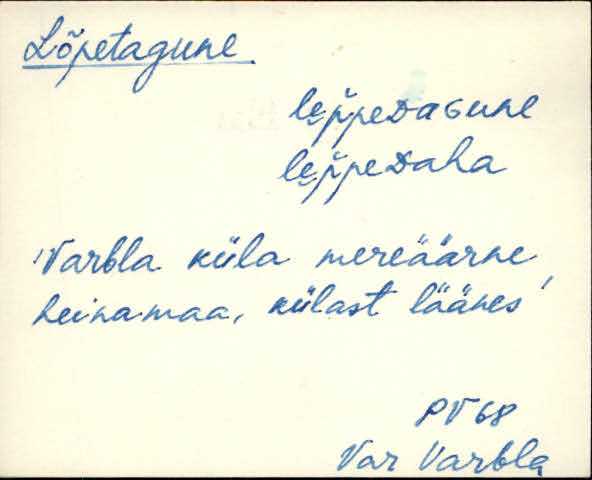 Lõpetagune
le̮p̆peDaGune
le̮p̆peDaha
'Varbla küla mereäärne
heinamaa, külast läänes'
PV 68
Var Varbla